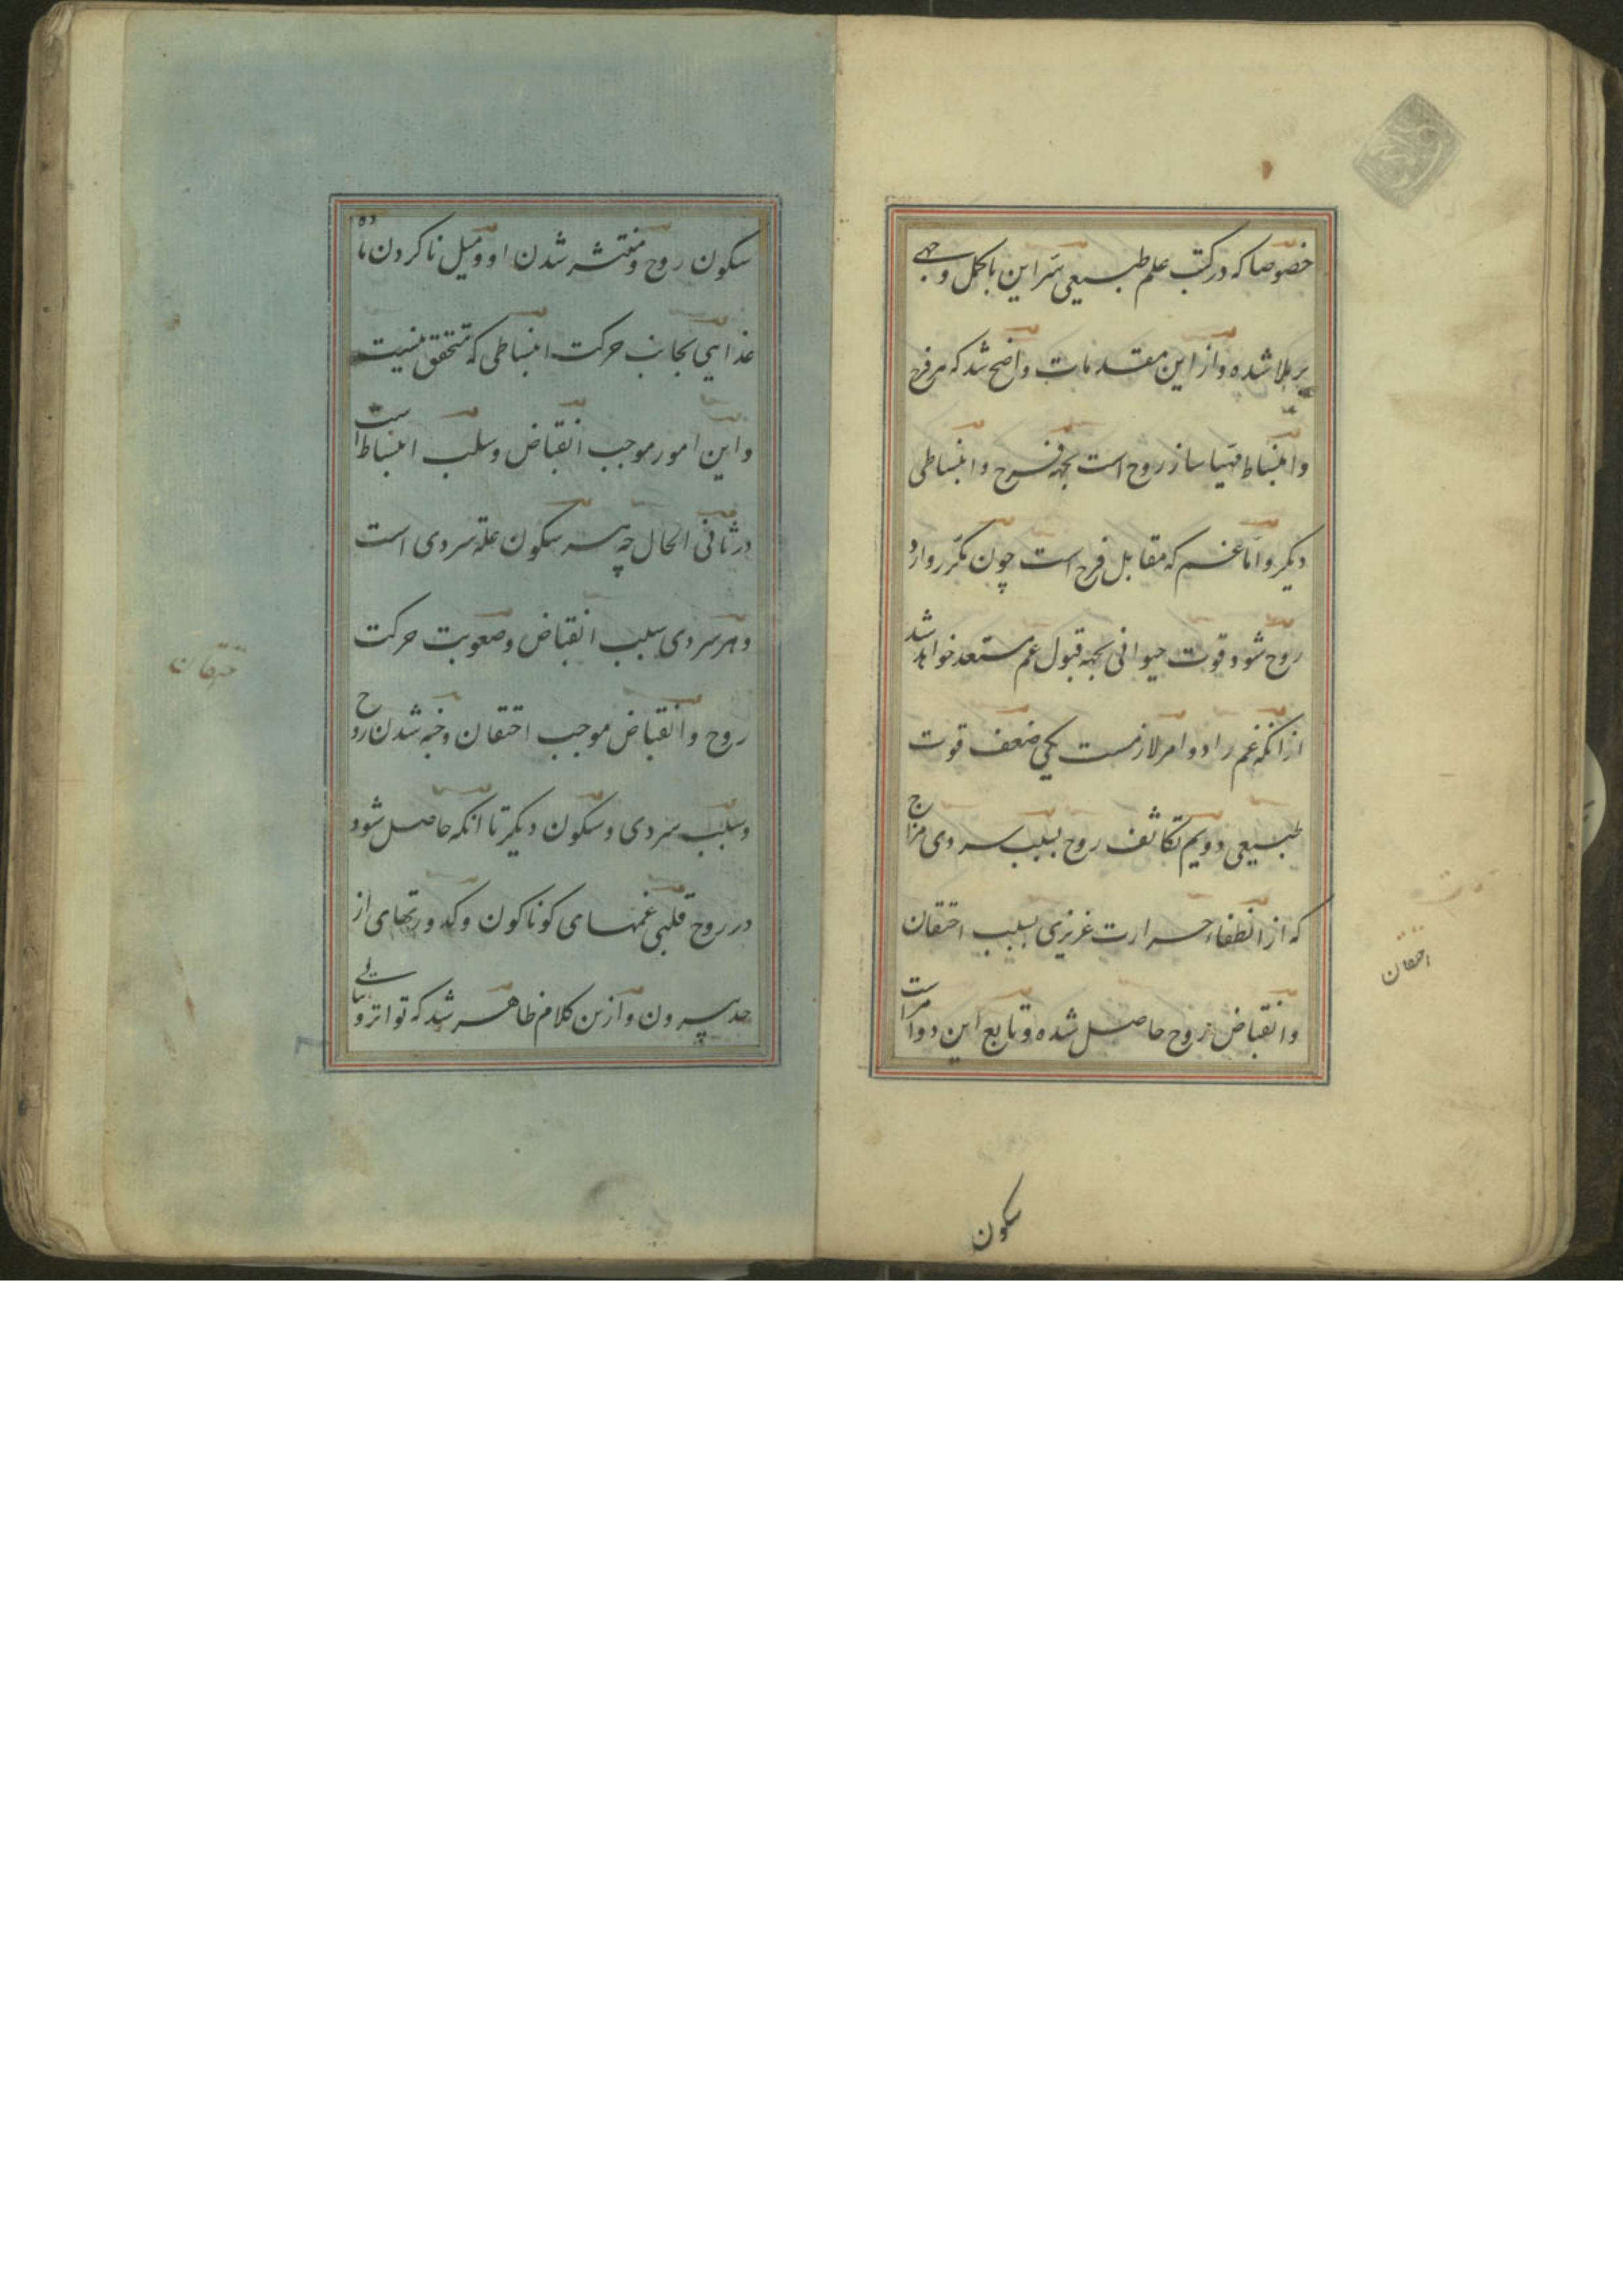 خصوصا که در کتب علم طبیعی سر این باکمل وجهی
بر ملا شده و از این مقدمات واضح شد که هر فرح
و انبساط مهیا ساز روح است بجهة فرح و انبساطی
دیکر و اما غم که مقابل فرح است چون مکرر وارد
روح شود قوت حیوانی بجهة قبول غم مستعد خواهد شد
از انکه غم را دو امر لازمست یکی ضعف قوت
طبیعی دویم تکاثف روح بسبب سردی مزاج
که از انطفاء حرارت غریزی بسبب احتقان
و انقباض روح حاصل شده و تابع این دو امر است
احتقان
سکون
سکون روح و منتشر شدن او و میل ناکردن ماده
غذایی بجانب حرکت انبساطی که متحقق نیست
و این امور موجب انقباض و سلب انبساط است
در ثانی الحال چه هر سکون علة سردی است
و هر سردی سبب انقباض و صعوبت حرکت
روح و انقباض موجب احتقان و خبه شدن روح
و سبب سردی و سکون دیکر تا انکه حاصل شود
در روح قلبی غمهای کوناکون و کدورتهای از
حد بیرون و ازین کلام ظاهر شد که تواتر و تتالی